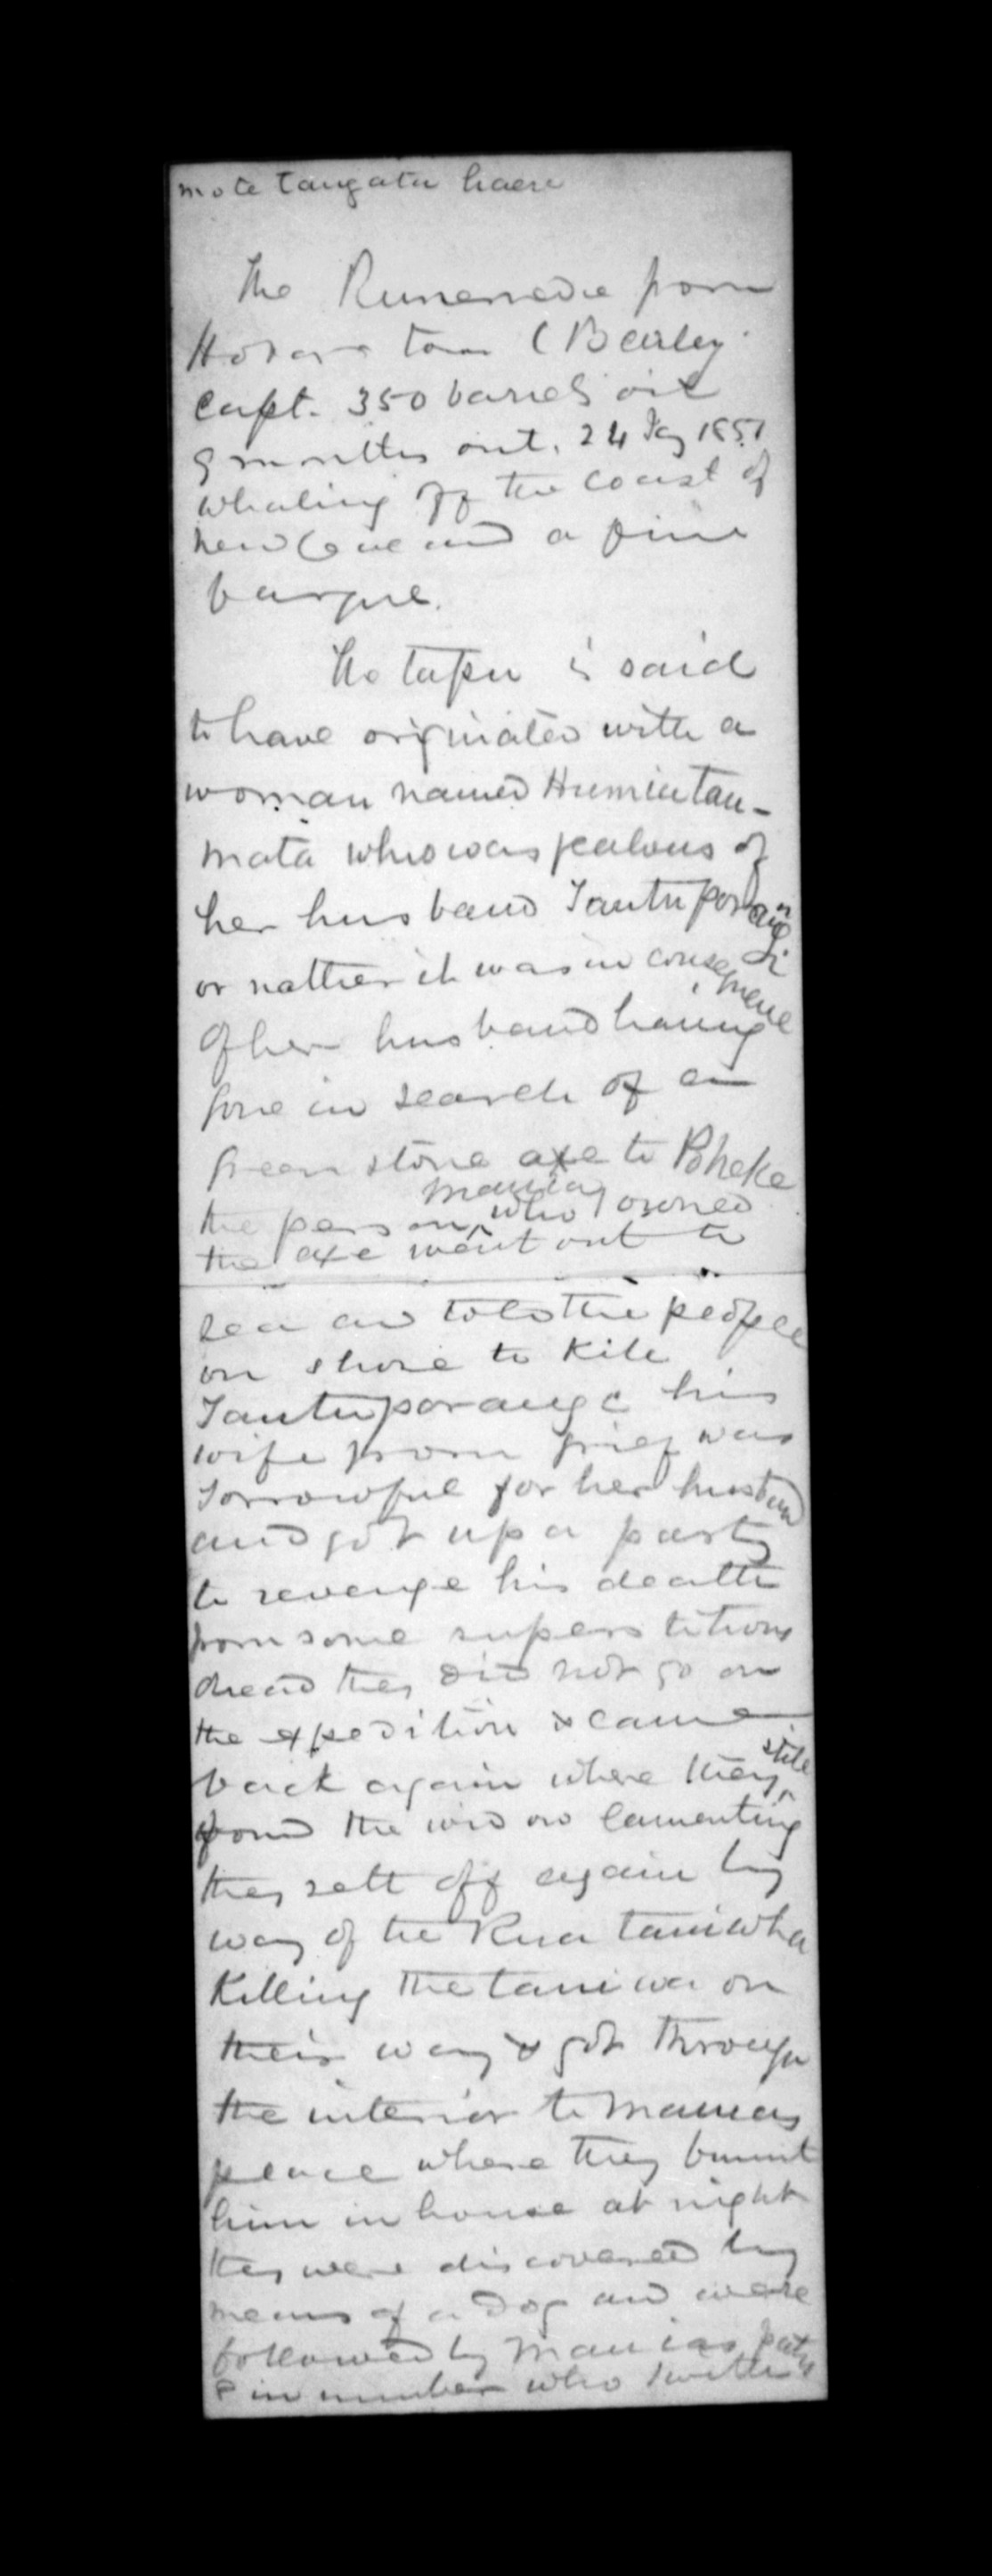 mo te tangata haere
The Runemede from
Hobar town (Bailey
Capt. 350 barrels oil
9 months out. 24 1851
whaling off the coast of
a fine
barque.
The tapu is said
to have originated with a
woman named Humiutau-
mata who was jealous of
her husband Tautuporangi
or rather it was in consequence
of her husband having
gone in search of a
green stone axe to Poheke
the person who owned
the axe went out to
sea and told the people
on shore to kill
Tautuporangi his
wife from grief was
sorrowful for her husband
and got up a party
to revenge his death
from some superstitious
dread they did not go on
the expedition & came
back again where they still
found the widow lamenting
they sett off again by
way of the Rua taniwha
Killing the taniwa on
their way & got through
the interior to Mauias
place where they burnt
him in house at night
they were discovered by
means of a Dog and were
followed by Mauias
8 in number who